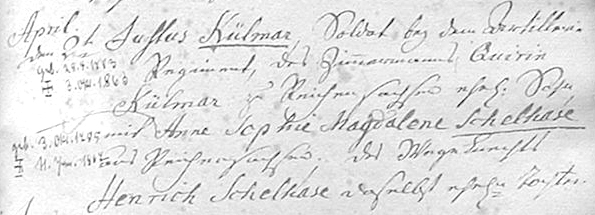 April
den 2t Justus Külmar, Soldat bey dem Artillerie
geb. 28.4.1783
3. Okt. 1863
Regiment, des Zimmermanns Quirin
Külmar zu Reichensachsen ehel. Sohn
geb. 3. Okt. 1785
mit Anne Sophie Magdalene Schelhase
11. Jan.
aus Reichensachsen. des
Henrich Schelhase daselbst ehel. Tochter.